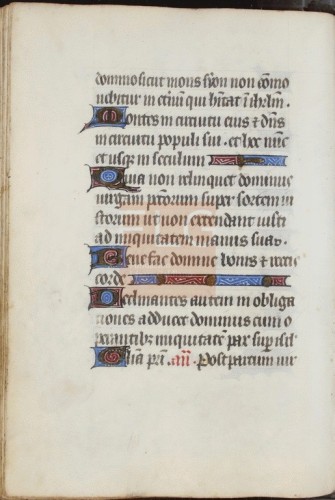 domino sicut mons syon non como
nebitur in eternu qui hitat i ihrlm.
Montes in circuitu eius et dns
in circuitu populi sui. et hec nunc
et usque in seculum
Quia non relinquet dominus
virgam pctorum super sortem iu
storum ut non extendant iusti
ad iniquitatem manus suas.
Bene fac domine bonis et rectis
corde
Declinantes autem in obliga
tiones adducet dominus cum o
perantibz iniquitate pax sup isrl
Glia pri. an. Post partum vir